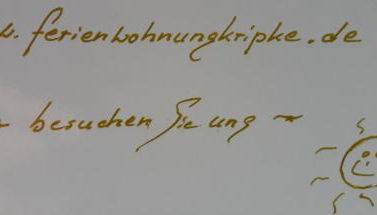 . ferienwohnungkripke.de
- besuchen Sie uns ~